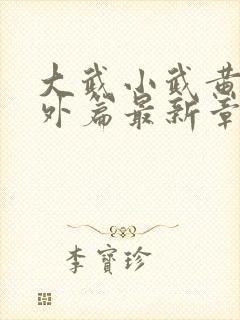 大武小武黄
外篇最新章
李寶珍